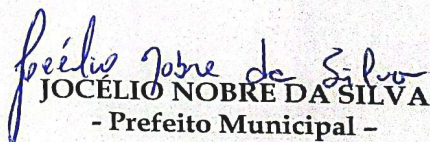 Jocélio Nobre da Silva
JOCÉLIO NOBRE DA SILVA
- Prefeito Municipal –